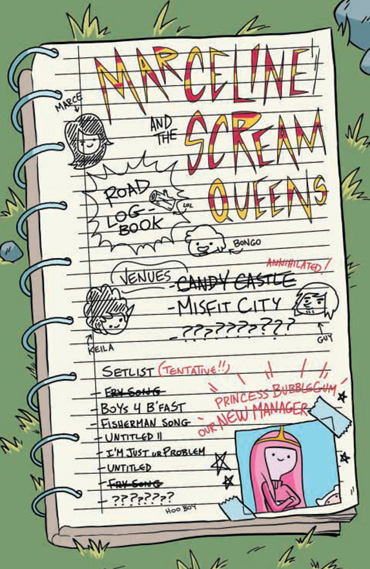 MARCELINE
MARCE
AND THE
SCREAM
QUEENS
ROAD
LOG--
BOOK
BONGO
ANNIHILATED!
VENUES
-CANDY CASTLE
-MISFIT CITY
-??????????
KEILA
GUY
SETLIST (TENTATIVE!!)
- FRY SONG
- BOYS 4 B'FAST
- FISHERMAN SONG
- UNTITLED II
- I'M JUST UR PROBLEM
- UNTITLED
- FRY SONG
- ???????
HOO BOY
PRINCESS BUBBLEGUM
OUR NEW MANAGER